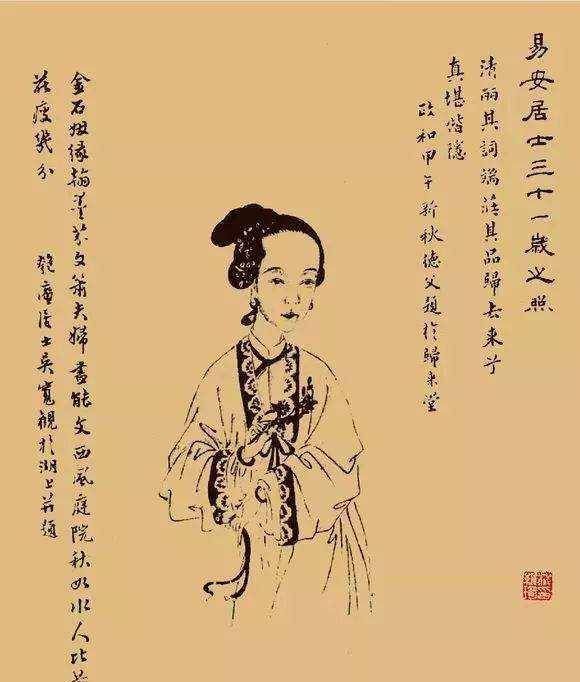 易安居士三十一歲之照
清丽其詞端莊其品歸去来兮
真堪偕隱
政和甲午新秋德父題於歸来堂
金石姻緣翰墨芬文簫夫婦盡能文西風庭院秋如水人比黄
花瘦幾分
匏庵居士吳寬觀於湖上并題